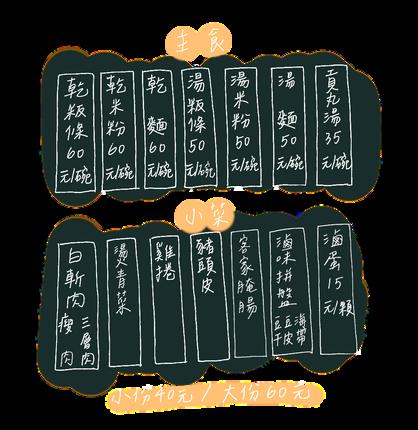 主食
乾粄條60元/碗
乾米粉60元/碗
乾麵60元/碗
湯粄條50元/碗
湯米粉50元/碗
湯麵50元/碗
貢丸湯35元/碗
小菜
白斬肉 瘦肉 三層肉
燙青菜
雞捲
豬頭皮
客家醃腸
滷味拼盤 豆干 豆皮 海帶
滷蛋15元/顆
小份40元/大份60元